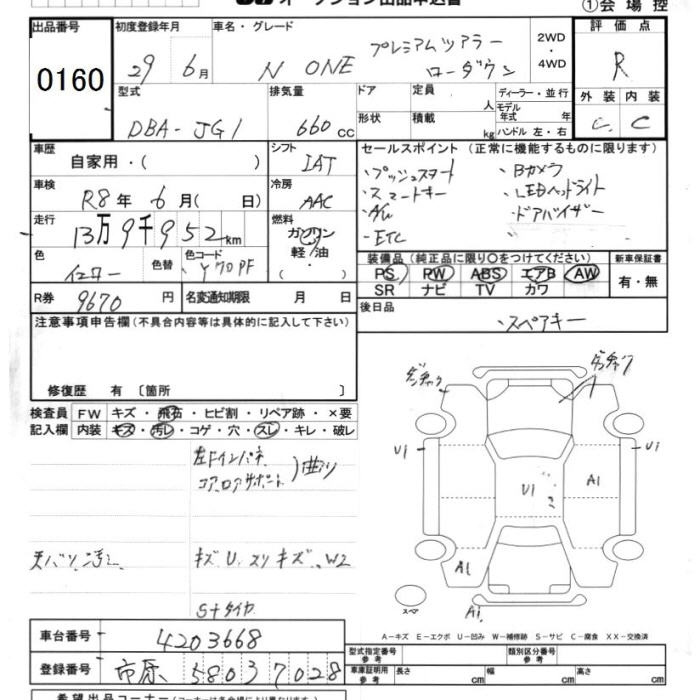 オークション出品申込書 ①会場控
出品番号 0160
初度登録年月 29年 6月
車名・グレード N ONE プレミアムツアラー ローダウン
2WD・4WD
評価点 R
型式 DBA-JG1
排気量 660cc
ドア 形状
定員 人
積載 kg
ディーラー・並行
モデル年式 年
ハンドル 左・右
外装 C 内装 C
車歴 自家用・( )
シフト IAT
セールスポイント (正常に機能するものに限ります)
・プッシュスタート ・Bカメラ
・スマートキー ・LEDヘッドライト
・A/W ・ドアバイザー
・ETC
車検 R8年 6月( 日)
冷房 AAC
走行 13万9千952km
燃料 ガソリン 軽油・( )
色 イエロー 色替 色コード Y70PF
装備品 (純正品に限り○をつけてください) 新車保証書
PS PW ABS エアB AW 有・無
SR ナビ TV カワ
R券 9670円 名変通知期限 月 日
後日品 ・スペアキー
注意事項申告欄 (不具合内容等は具体的に記入して下さい)
修復歴 有 〔箇所 〕
検査員 FW キズ・飛石・ヒビ割・リペア跡・×要
記入欄 内装 キズ・汚レ・コゲ・穴・スレ・キレ・破レ
左Fインパネ
コアロアサポート 曲り
天バリ汚レ
キズ U. スリキズ. W2
S+タイヤ
U1 U1
A1
U1
A1
A1
スペア
A-キズ E-エクボ U-凹み W-補修跡 S-サビ C-腐食 XX-交換済
車台番号 4203668
登録番号 市原 580 ヲ 7028
型式指定番号 参考 類別区分番号 参考
車庫証明用 参考 長さ cm 幅 cm 高さ cm
希望出品コーナー